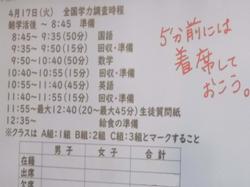 4月17日(火) 全国学力調査時程
朝学活後 ~ 8:45 準備
8:45~ 9:35(50分) 国語
9:35~ 9:50(15分) 回収・準備
9:50~10:40(50分) 数学
10:40~10:55(15分) 回収・準備
10:55~11:40(45分) 英語
11:40~11:55(15分) 回収・準備
11:55~最大12:40(20~45分)生徒質問紙
12:35~ 給食の準備
※クラスは A組:1組 B組:2組 C組:3組とマークすること
男子 女子 合計
在籍
出席
欠席
5分前には
着席して
おこう。